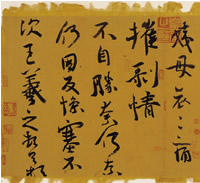 姨母哀〻痛
摧剥情
不自勝奈何奈
何因反慘塞不
次王羲之頓首